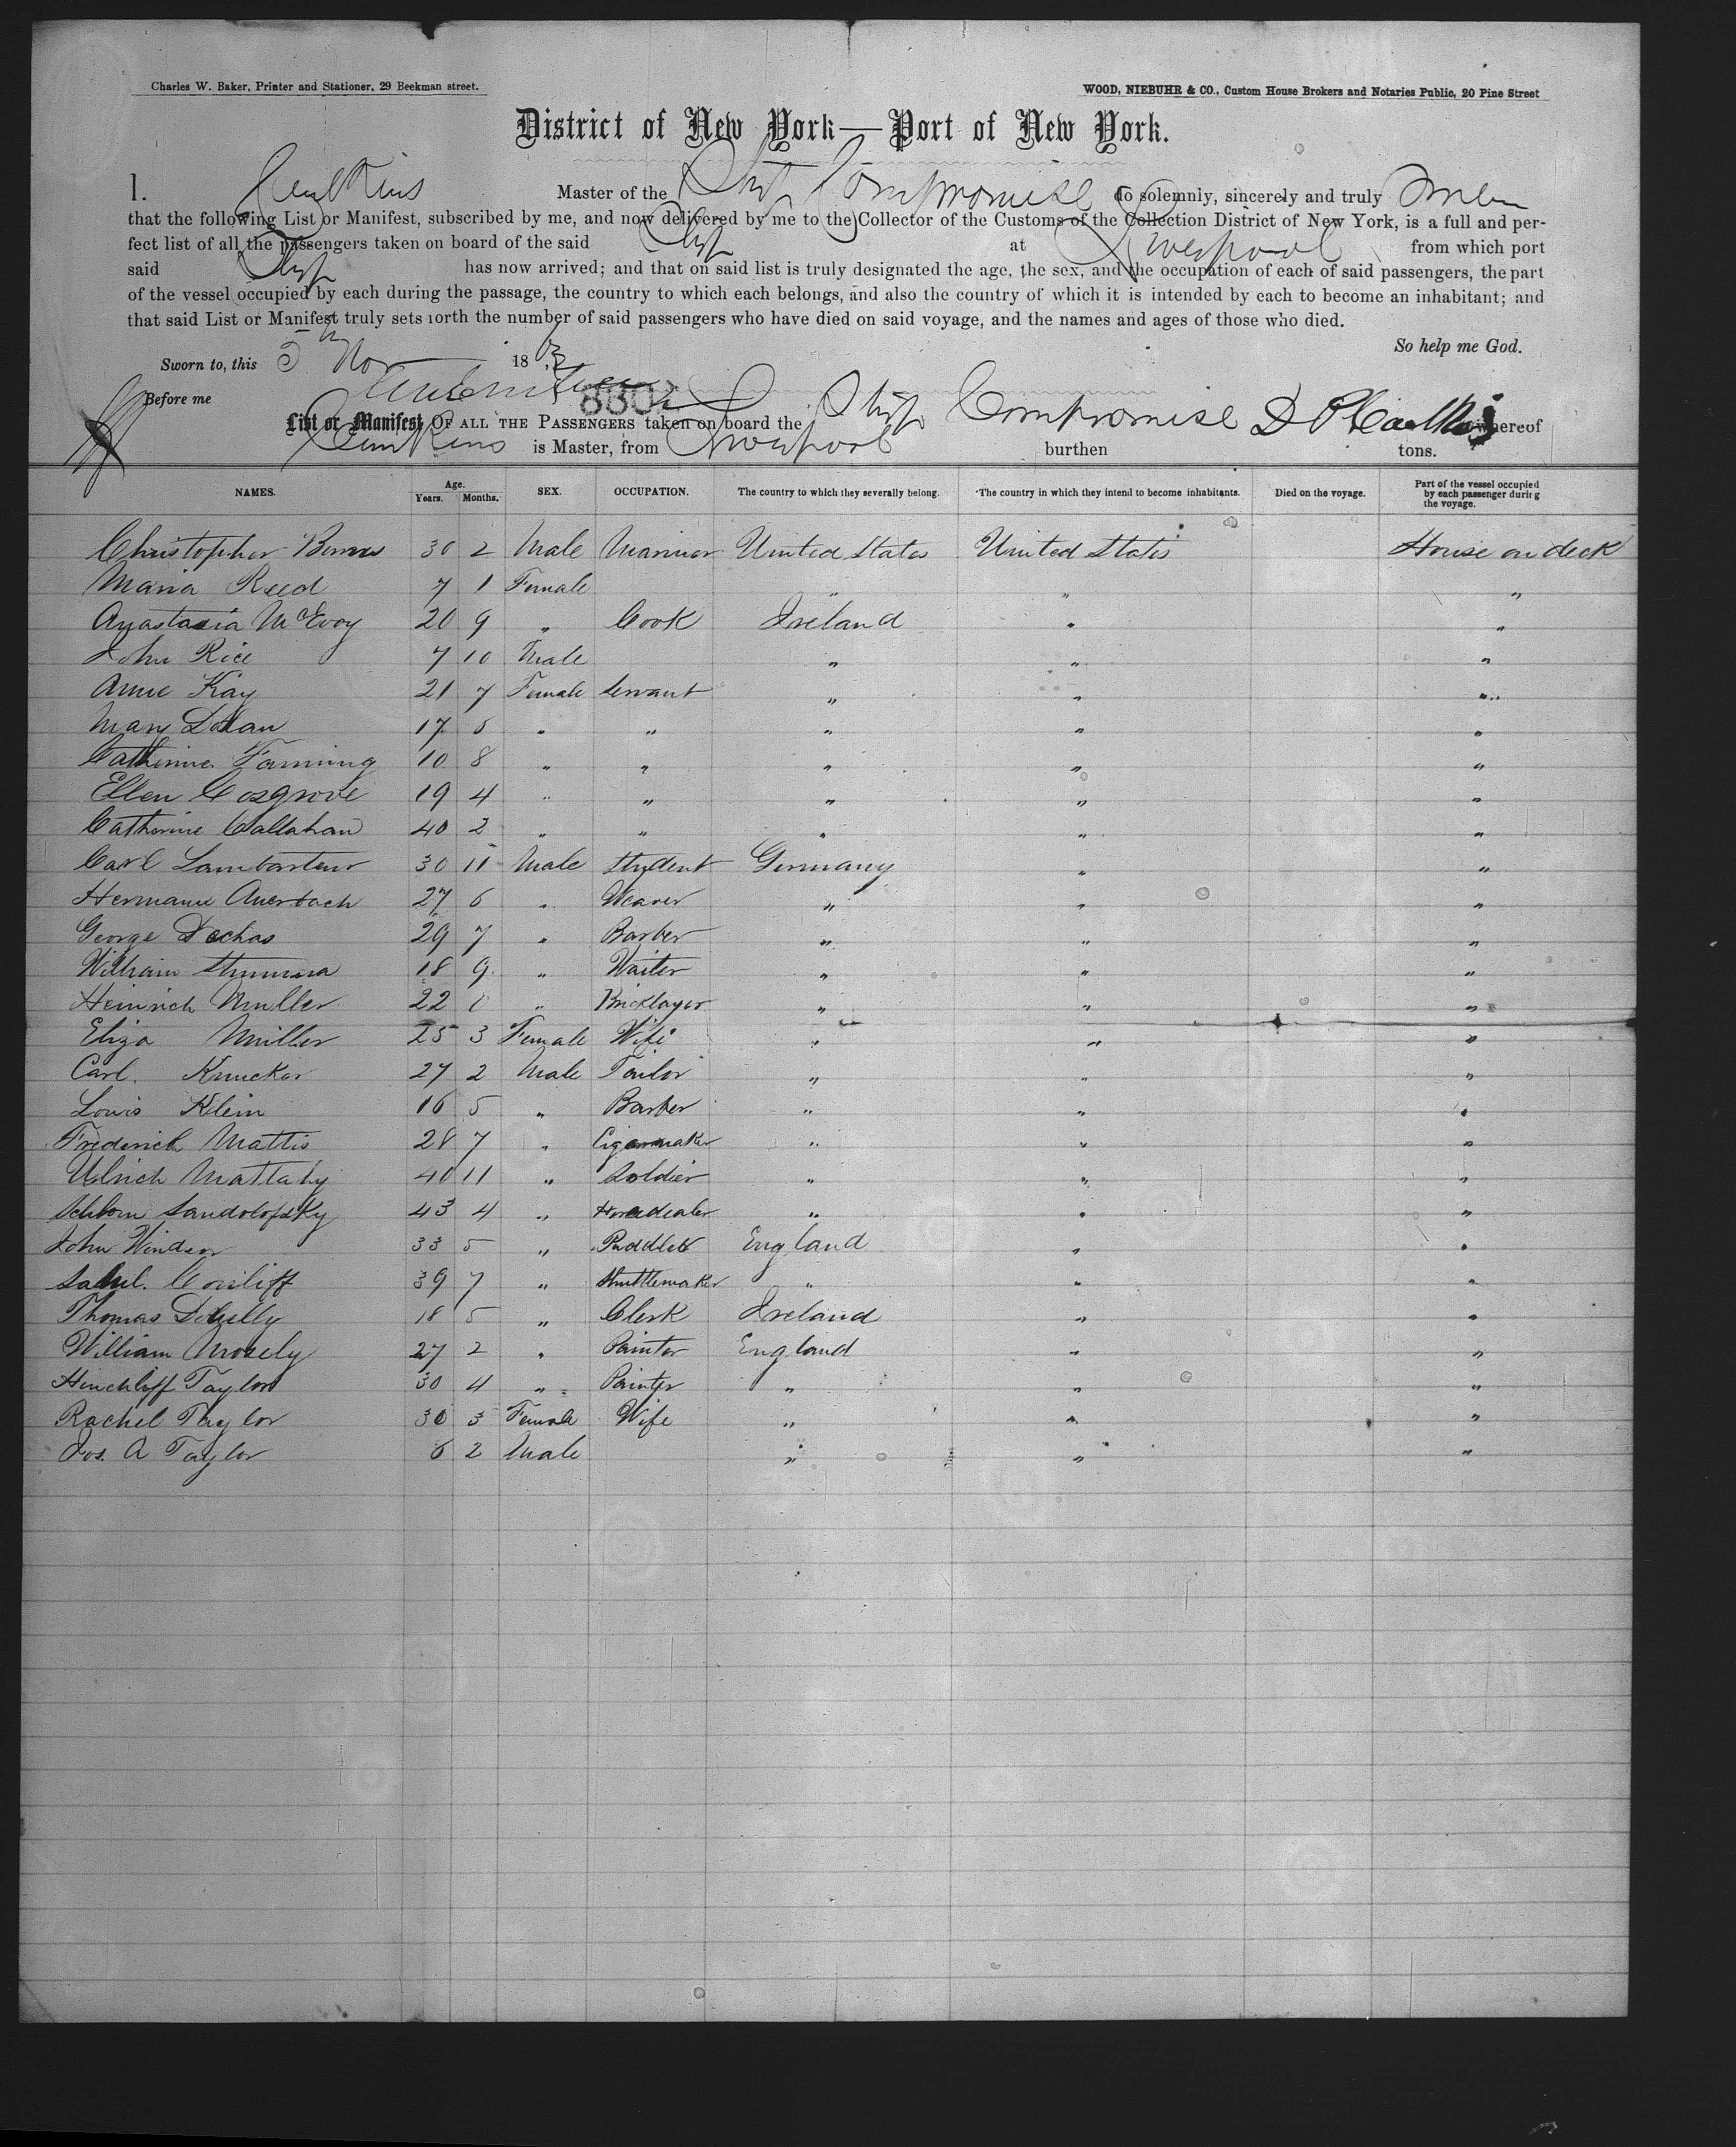 Charles W. Baker, Printer and Stationer, 29 Beekman street.
WOOD, NIEBUHR & CO., Custom House Brokers and Notaries Public, 20 Pine Street
District of New York—Port of New York.
I. Master of the Ship Compromise do solemnly, sincerely and truly swear
that the following List or Manifest, subscribed by me, and now delivered by me to the Collector of the Customs of the Collection District of New York, is a full and per-
fect list of all the passengers taken on board of the said Ship at Liverpool from which port
said Ship has now arrived; and that on said list is truly designated the age, the sex, and the occupation of each of said passengers, the part
of the vessel occupied by each during the passage, the country to which each belongs, and also the country of which it is intended by each to become an inhabitant; and
that said List or Manifest truly sets forth the number of said passengers who have died on said voyage, and the names and ages of those who died.
So help me God.
Sworn to, this 5th Nov 1863
Before me
List or Manifest OF ALL THE PASSENGERS taken on board the Ship Compromise whereof
is Master, from Liverpool burthen tons.
NAMES. Age. Years. Months. SEX. OCCUPATION. The country to which they severally belong. The country in which they intend to become inhabitants. Died on the voyage. Part of the vessel occupied by each passenger during the voyage.
Christopher 30 2 Male Mariner United States United States House on deck
Maria Reed 7 1 Female " " "
Anastasia McEvoy 20 9 " Cook Ireland " "
John Rice 7 10 Male " " "
Anne Kay 21 7 Female Servant " " "
Mary Dolan 17 " " " " "
Catherine Fanning 10 8 " " " " "
Ellen Cosgrove 19 4 " " " " "
Catherine Callahan 40 2 " " " " "
Carl 30 11 Male Student Germany " "
Hermann Auerbach 27 6 " Weaver " " "
George Dechas 29 7 " Barber " " "
William 18 9 " Waiter " " "
Heinrich Muller 22 " Bricklayer " " "
Eliza Muller 25 3 Female Wife " " "
Carl Knucker 27 2 Male Tailor " " "
Louis Klein 16 5 " Barber " " "
Frederick Mattis 28 7 " Cigarmaker " " "
Ulrich 40 11 " Soldier " " "
Sandolofsky 43 4 " Horsedealer " " "
John Windsor 33 5 " Puddler England " "
39 7 " Shuttlemaker " " "
Thomas 18 5 " Clerk Ireland " "
William Mosely 27 2 " Painter England " "
Hinchliff Taylor 30 4 " Painter " " "
Rachel Taylor 30 3 Female Wife " " "
Jos. A Taylor 6 2 Male " " "